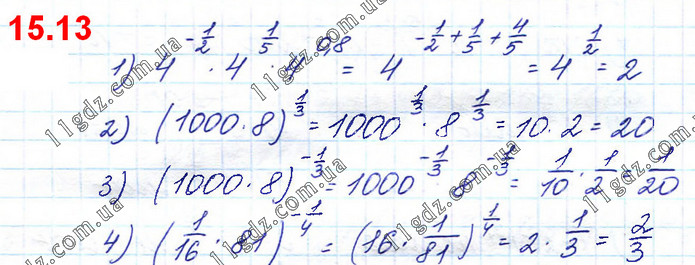 15.13
1) 4^{-\frac{1}{2}} · 4^{\frac{1}{5}} · 4^{0,8} = 4^{-\frac{1}{2}+\frac{1}{5}+\frac{4}{5}} = 4^{\frac{1}{2}} = 2
2) (1000·8)^{\frac{1}{3}} = 1000^{\frac{1}{3}} · 8^{\frac{1}{3}} = 10·2 = 20
3) (1000·8)^{-\frac{1}{3}} = 1000^{-\frac{1}{3}} · 8^{-\frac{1}{3}} = \frac{1}{10} · \frac{1}{2} = \frac{1}{20}
4) (\frac{1}{16} · 81)^{-\frac{1}{4}} = (16 · \frac{1}{81})^{\frac{1}{4}} = 2 · \frac{1}{3} = \frac{2}{3}
11gdz.com.ua
11gdz.com.ua
11gdz.com.ua
11gdz.com.ua
11gdz.com.ua